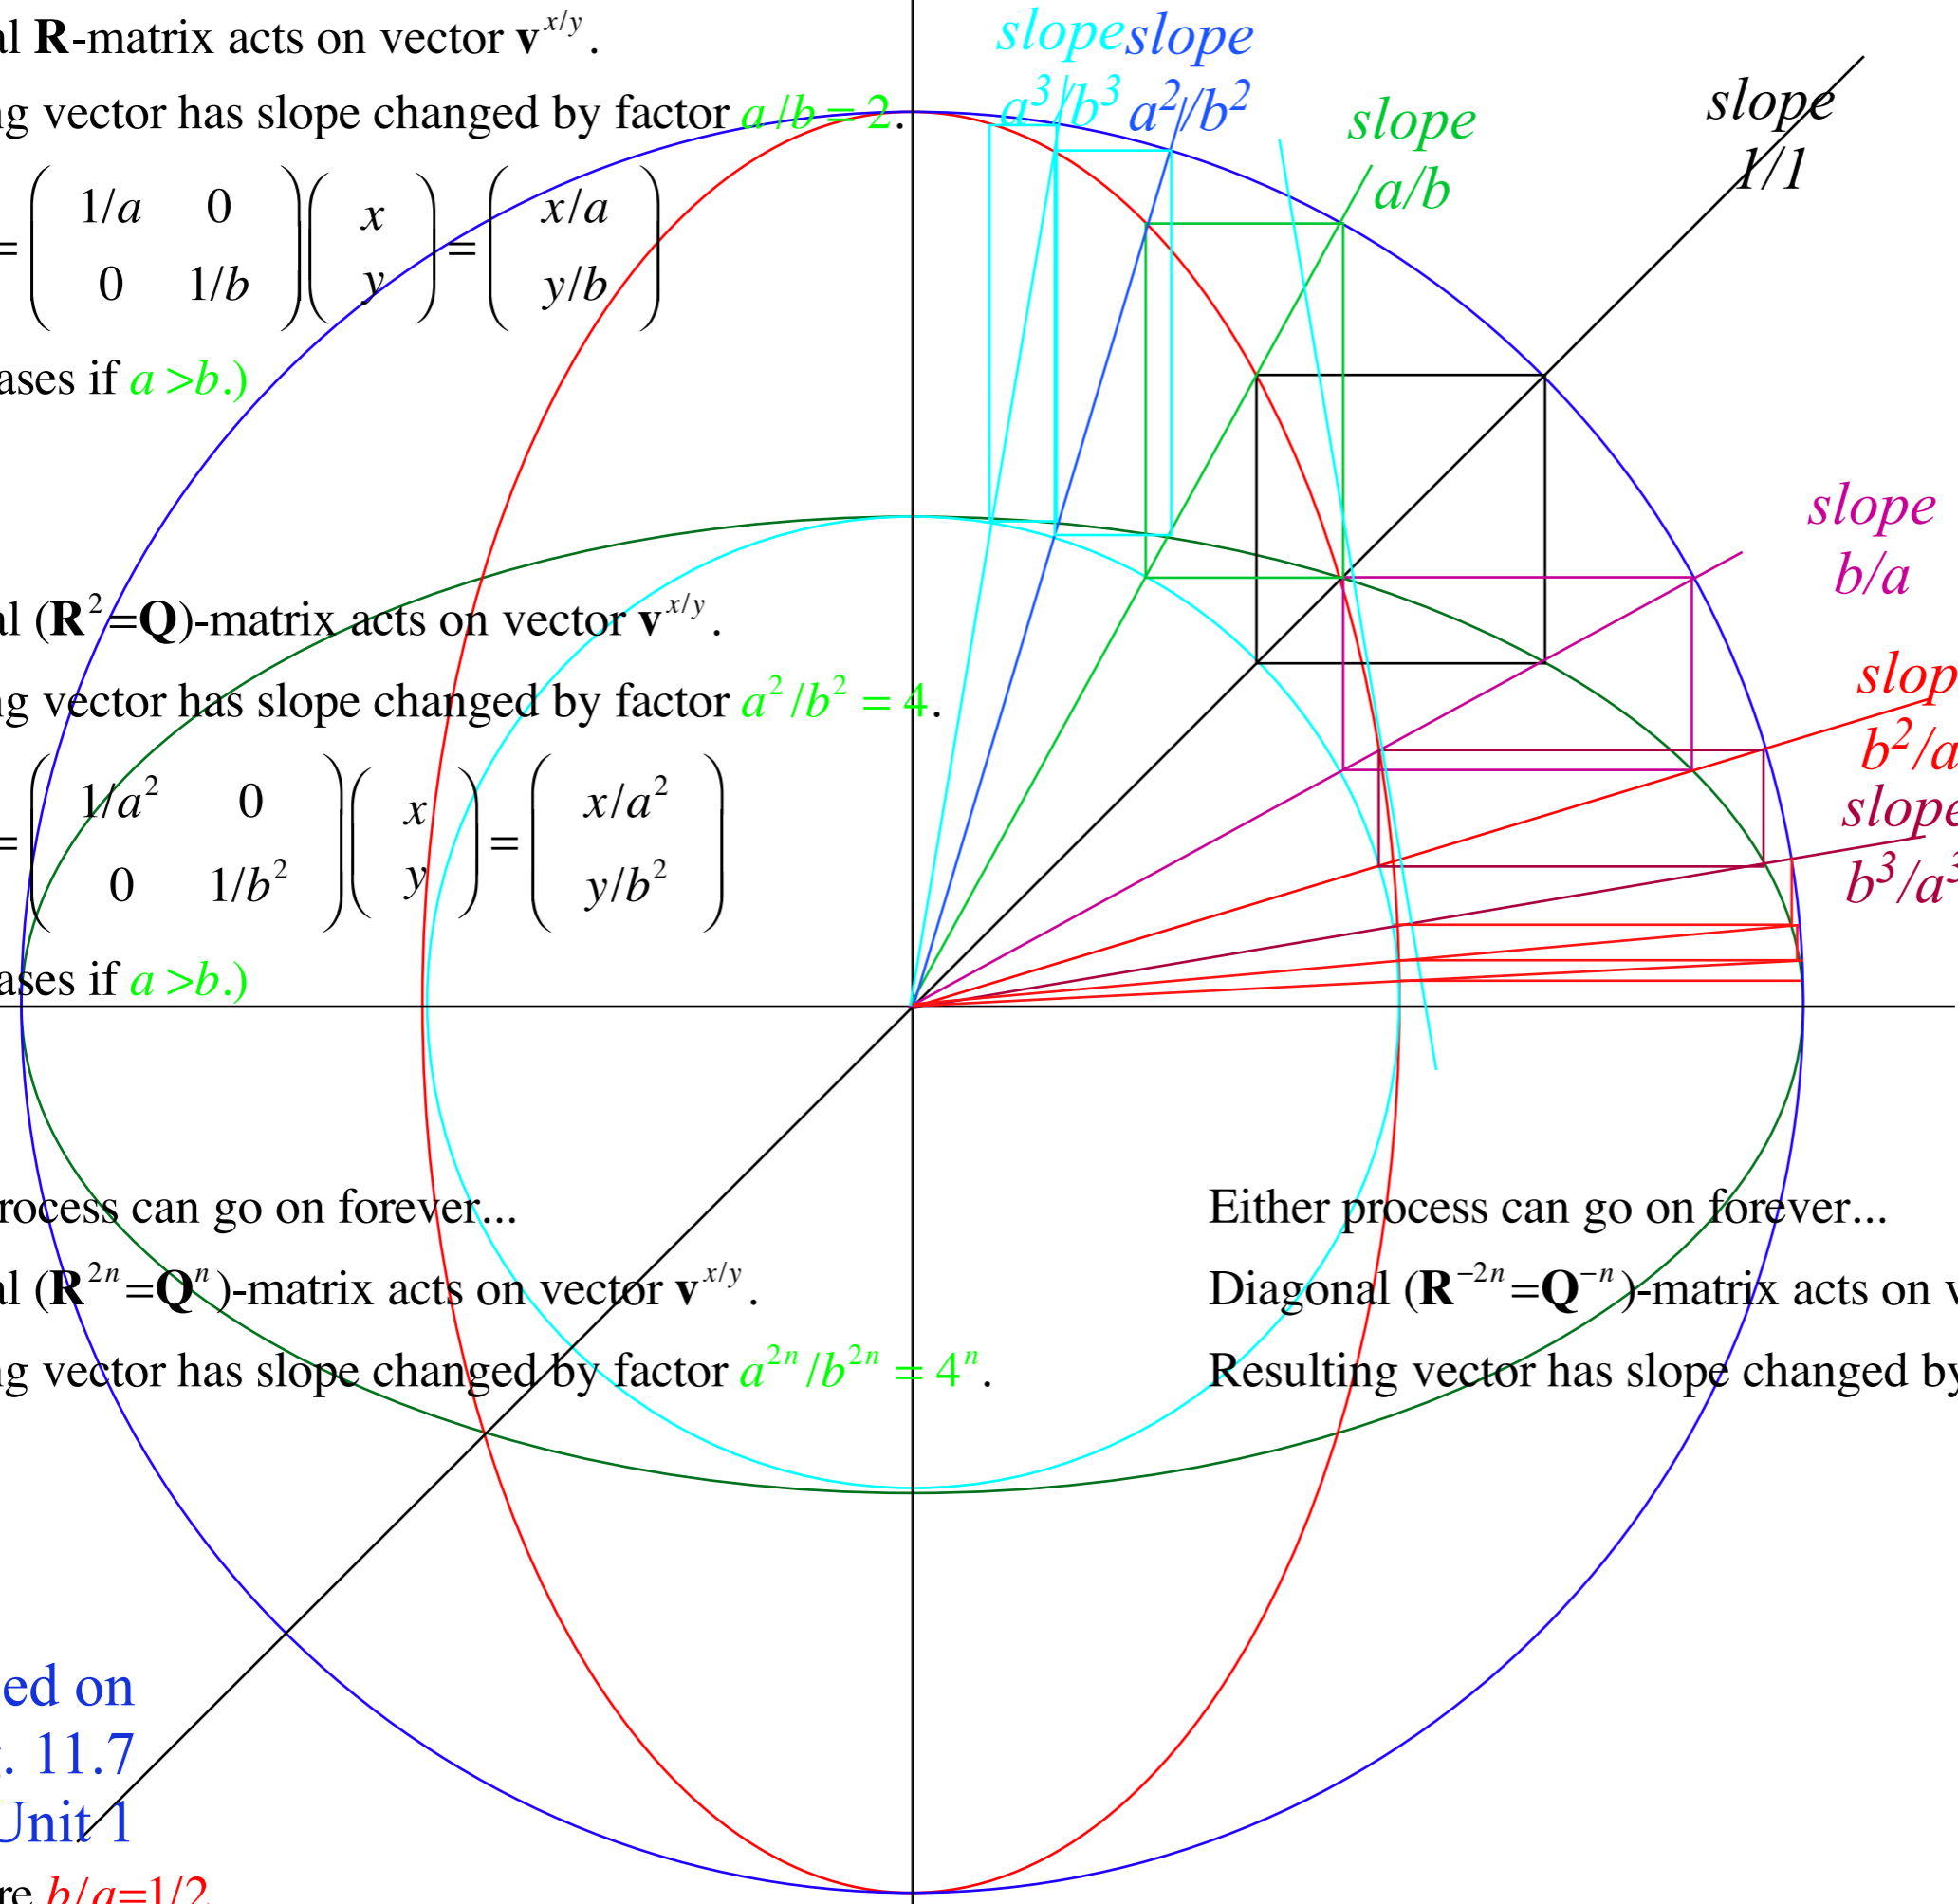 al R-matrix acts on vector v^{x/y}.
ng vector has slope changed by factor a/b = 2.
= ( 1/a 0 ; 0 1/b ) ( x ; y ) = ( x/a ; y/b )
ases if a >b.)
al (R^2=Q)-matrix acts on vector v^{x/y}.
ng vector has slope changed by factor a^2/b^2 = 4.
= ( 1/a^2 0 ; 0 1/b^2 ) ( x ; y ) = ( x/a^2 ; y/b^2 )
ases if a >b.)
rocess can go on forever...
al (R^{2n}=Q^n)-matrix acts on vector v^{x/y}.
ng vector has slope changed by factor a^{2n}/b^{2n} = 4^n.
ed on
. 11.7
Unit 1
re b/a=1/2
slope
a^3/b^3
slope
a^2/b^2
slope
a/b
slope
1/1
slope
b/a
slop
b^2/a
slope
b^3/a^3
Either process can go on forever...
Diagonal (R^{-2n}=Q^{-n})-matrix acts on v
Resulting vector has slope changed by